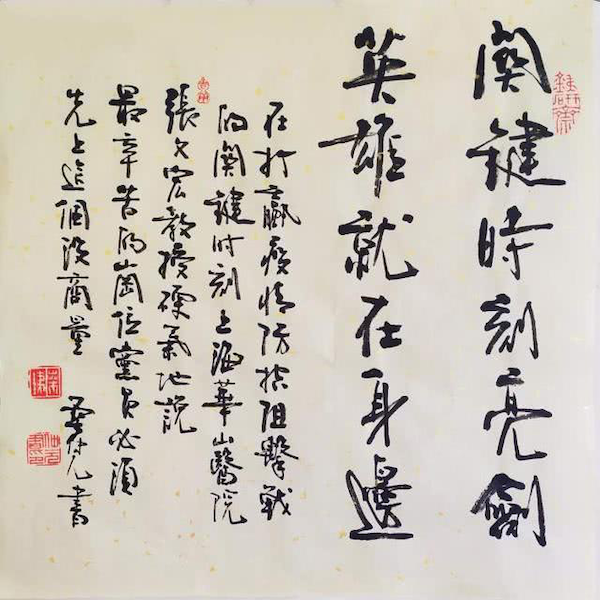 關鍵時刻亮劍
英雄就在身邊
在打贏疫情防控阻擊戰
的關鍵時刻上海華山醫院
張文宏教授硬氣地説
最辛苦的崗位黨員必須
先上這個沒商量
書